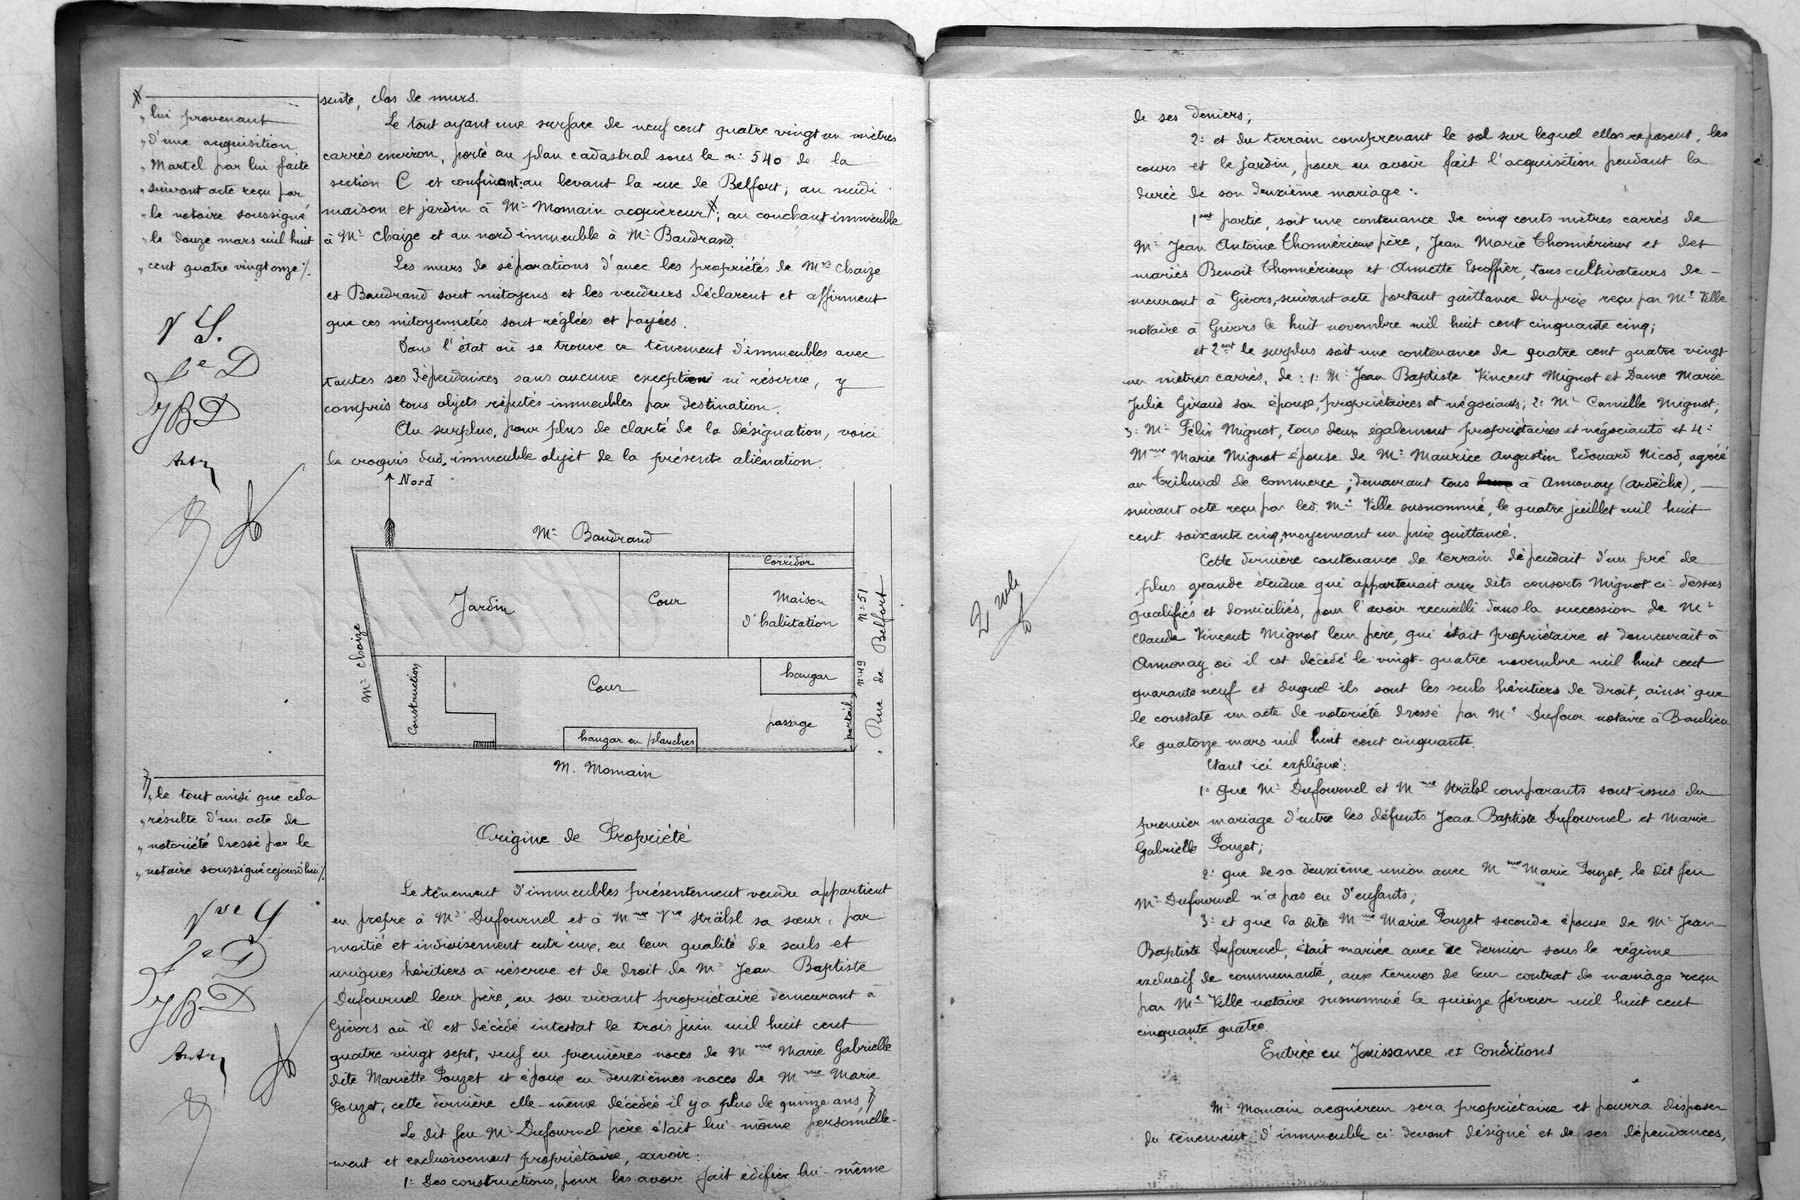 „ lui provenant
„ d'une acquisition
„ Martel par lui faite
„ suivant acte reçu par
„ le notaire soussigné
„ le douze mars mil huit
„ cent quatre vingt onze ·/.
V S.
J e D
JBD
suite, clos de murs.
Le tout ayant une surface de neuf cent quatre vingt un mètres
carrés environ, porté au plan cadastral sous le n: 540 de la
section C et confinant: au levant la rue de Belfort; au midi
maison et jardin à Mr Momain acquéreur; au couchant immeuble
à Mr Chaize et au nord immeuble à Mr Baudrand.
Les murs de séparations d'avec les propriétés de Mrs Chaize
et Baudrand sont mitoyens et les vendeurs déclarent et affirment
que ces mitoyennetés sont réglées et payées.
Dans l'état où se trouve ce tènement d'immeubles avec
toutes ses dépendances sans aucune exception ni réserve, y
compris tous objets réputés immeubles par destination.
Au surplus, pour plus de clarté de la désignation, voici
le croquis dud. immeuble objet de la présente aliénation.
Nord
Mr Baudrand
Corridor
Jardin
Cour
Maison
d'habitation
N: 51
Mr Chaize
Construction
Cour
hangar
N: 49
Rue de Belfort
passage
portail
hangar en planches
M. Momain
„ le tout ainsi que cela
„ résulte d'un acte de
„ notoriété dressé par le
„ notaire soussigné cejourd'hui ·/.
Vve S
J e D
JBD
Origine de Propriété
Le tènement d'immeubles présentement vendu appartient
en propre à Mr Dufournel et à Mme Vve Strälsl sa sœur, par
moitié et indivisement entr'eux, en leur qualité de seuls et
uniques héritiers à réserve et de droit de Mr Jean Baptiste
Dufournel leur père, en son vivant propriétaire demeurant à
Givors où il est décédé intestat le trois juin mil huit cent
quatre vingt sept, veuf en premières noces de Mme Marie Gabrielle
dite Mariette Pouzet et époux en deuxièmes noces de Mme Marie
Pouzet, cette dernière elle-même décédée il y a plus de quinze ans,
Le dit feu Mr Dufournel père était lui-même personnelle-
ment et exclusivement propriétaire, savoir:
1: Des constructions, pour les avoir fait édifier lui-même
2 role
de ses deniers;
2: et du terrain comprenant le sol sur lequel elles reposent, les
cours et le jardin, pour en avoir fait l'acquisition pendant la
durée de son deuxième mariage:
1ent partie, soit une contenance de cinq cents mètres carrés de
Mr Jean Antoine Thonnérieux père, Jean Marie Thonnérieux et des
mariés Benoit Thonnérieux et Annette Escoffier, tous cultivateurs de-
meurant à Givors, suivant acte portant quittance du prix reçu par Me Velle
notaire à Givors le huit novembre mil huit cent cinquante cinq;
et 2ent le surplus soit une contenance de quatre cent quatre vingt
un mètres carrés, de: 1: Mr Jean Baptiste Vincent Mignot et Dame Marie
Julie Giraud son épouse, propriétaires et négociants; 2: Mr Camille Mignot,
3: Mr Félix Mignot, tous deux également propriétaires et négociants et 4:
Mme Marie Mignot épouse de Mr Maurice Augustin Edouard Nicod, agréé
au Tribunal de Commerce; demeurant tous à Annonay (ardèche),
suivant acte reçu par led. Me Velle susnommé, le quatre juillet mil huit
cent soixante cinq, moyennant un prix quittancé.
Cette dernière contenance de terrain dépendait d'un pré de
plus grande étendue qui appartenait aux dits consorts Mignot ci-dessus
qualifiés et domiciliés, pour l'avoir recueilli dans la succession de Mr
Claude Vincent Mignot leur père, qui était propriétaire et demeurait à
Annonay où il est décédé le vingt-quatre novembre mil huit cent
quarante neuf et duquel ils sont les seuls héritiers de droit, ainsi que
le constate un acte de notoriété dressé par Me Dufour notaire à Baulieu
le quatorze mars mil huit cent cinquante.
Etant ici expliqué:
1: que Mr Dufournel et Mme Strälsl comparants sont issus du
premier mariage d'entre les défunts Jean Baptiste Dufournel et Marie
Gabrielle Pouzet;
2: que de sa deuxième union avec Mme Marie Pouzet, le dit feu
Mr Dufournel n'a pas eu d'enfants;
3: et que la dite Mme Marie Pouzet seconde épouse de Mr Jean
Baptiste Dufournel, était mariée avec ce dernier sous le régime
exclusif de communauté, aux termes de leur contrat de mariage reçu
par Me Velle notaire susnommé le quinze février mil huit cent
cinquante quatre.
Entrée en Jouissance et Conditions
Mr Momain acquéreur sera propriétaire et pourra disposer
du tènement d'immeuble ci-devant désigné et de ses dépendances,